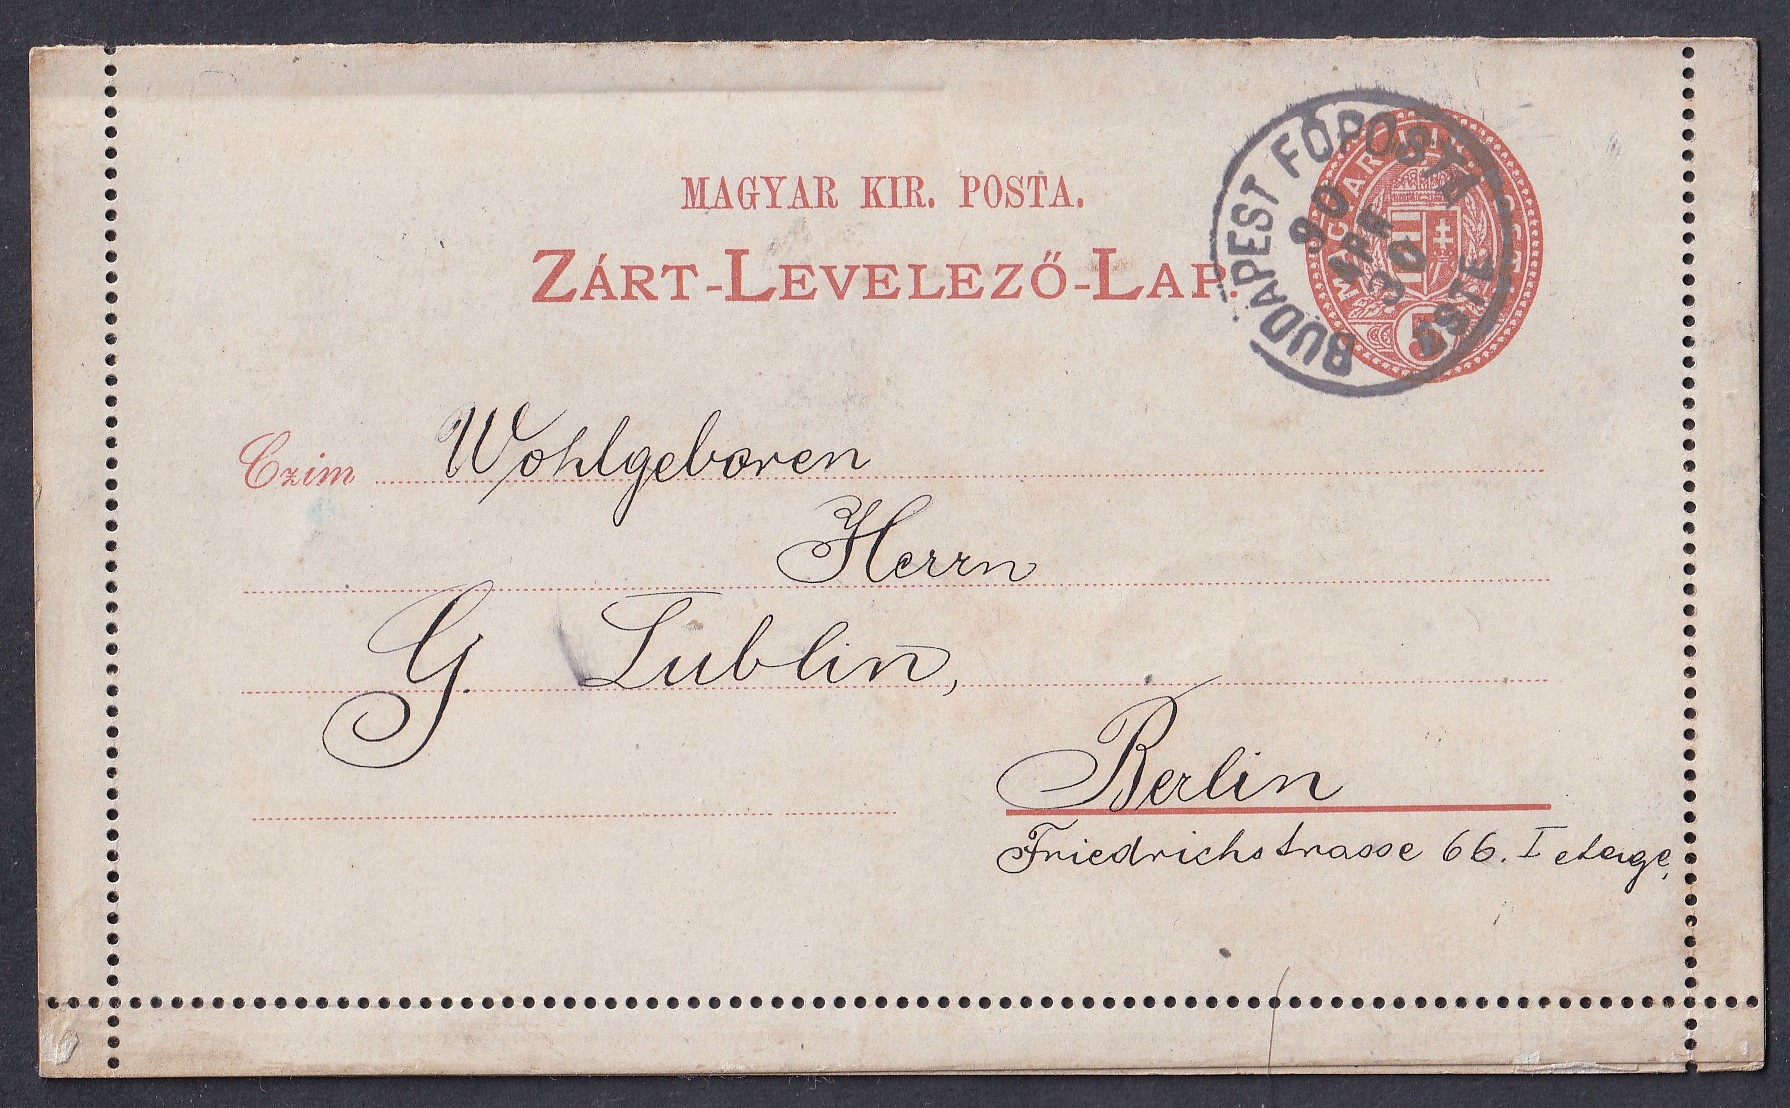 MAGYAR KIR. POSTA.
ZÁRT-LEVELEZŐ-LAP.
BUDAPEST FŐPOSTA
90
30
ESTE
5
Czim
Wohlgeboren
Herrn
G. Lublin,
Berlin
Friedrichstrasse 66. I etage,